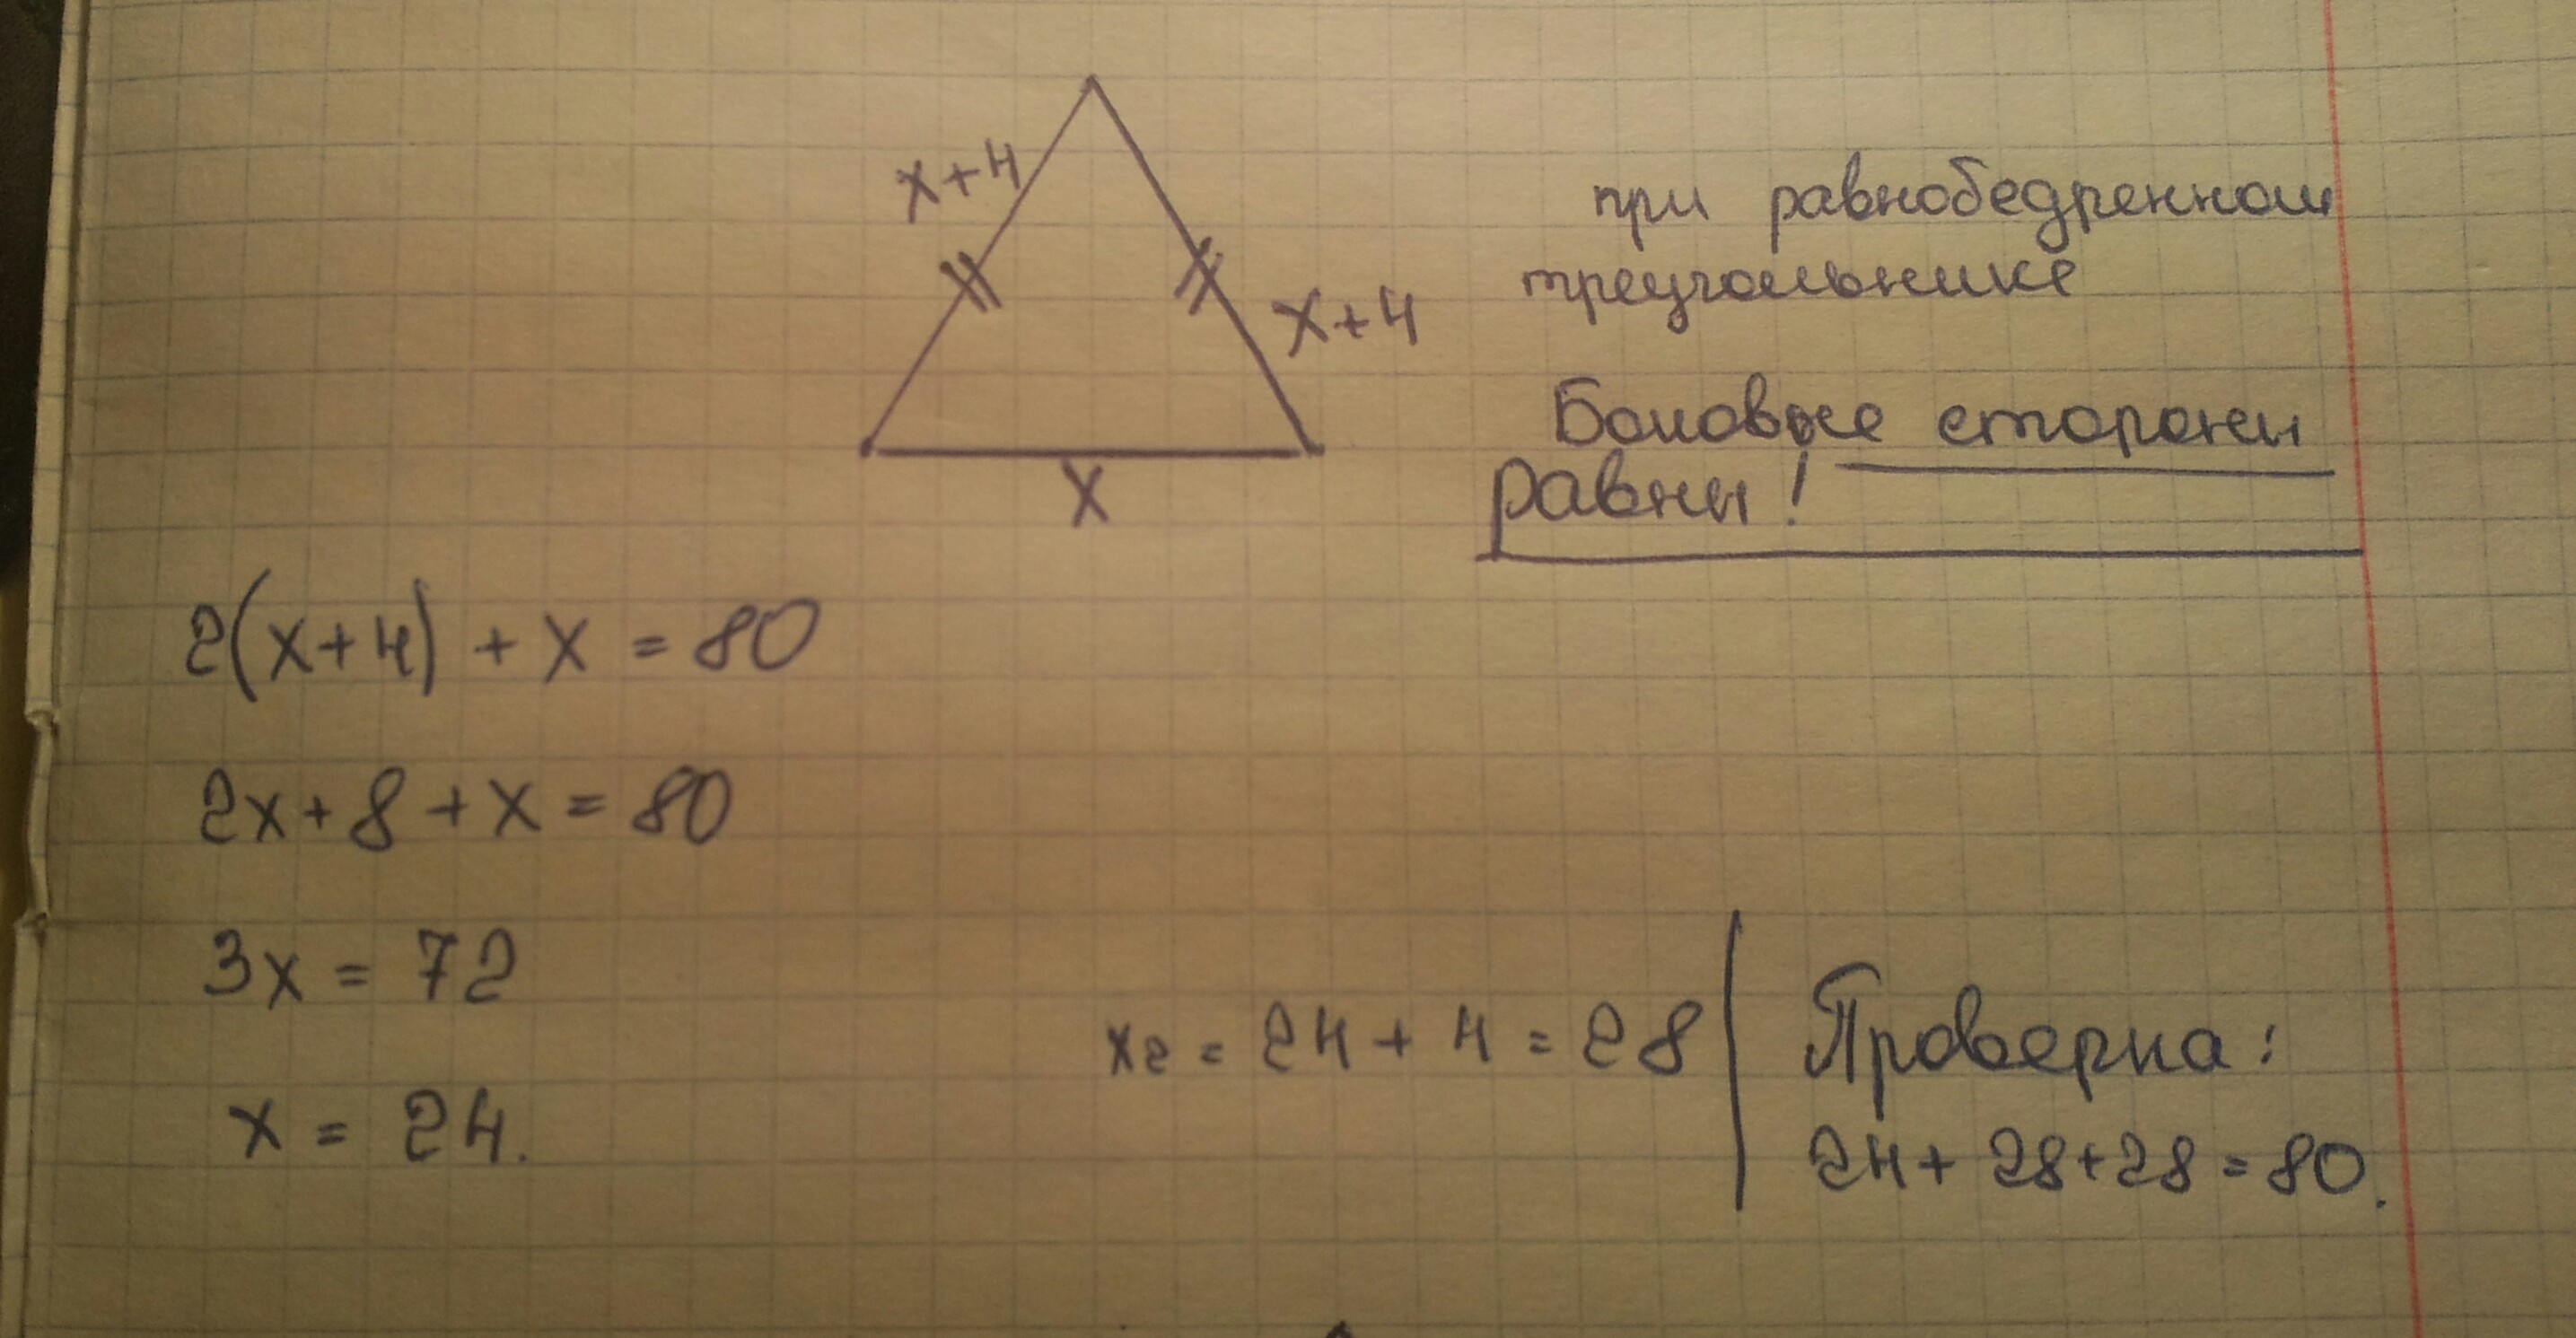 x+4
x+4
x
при равнобедренном
треугольнике
Боковые стороны
равны!
2(x+4) + x = 80
2x+8+x=80
3x = 72
x = 24.
x2 = 24 + 4 = 28
Проверка:
24+ 28+28=80.